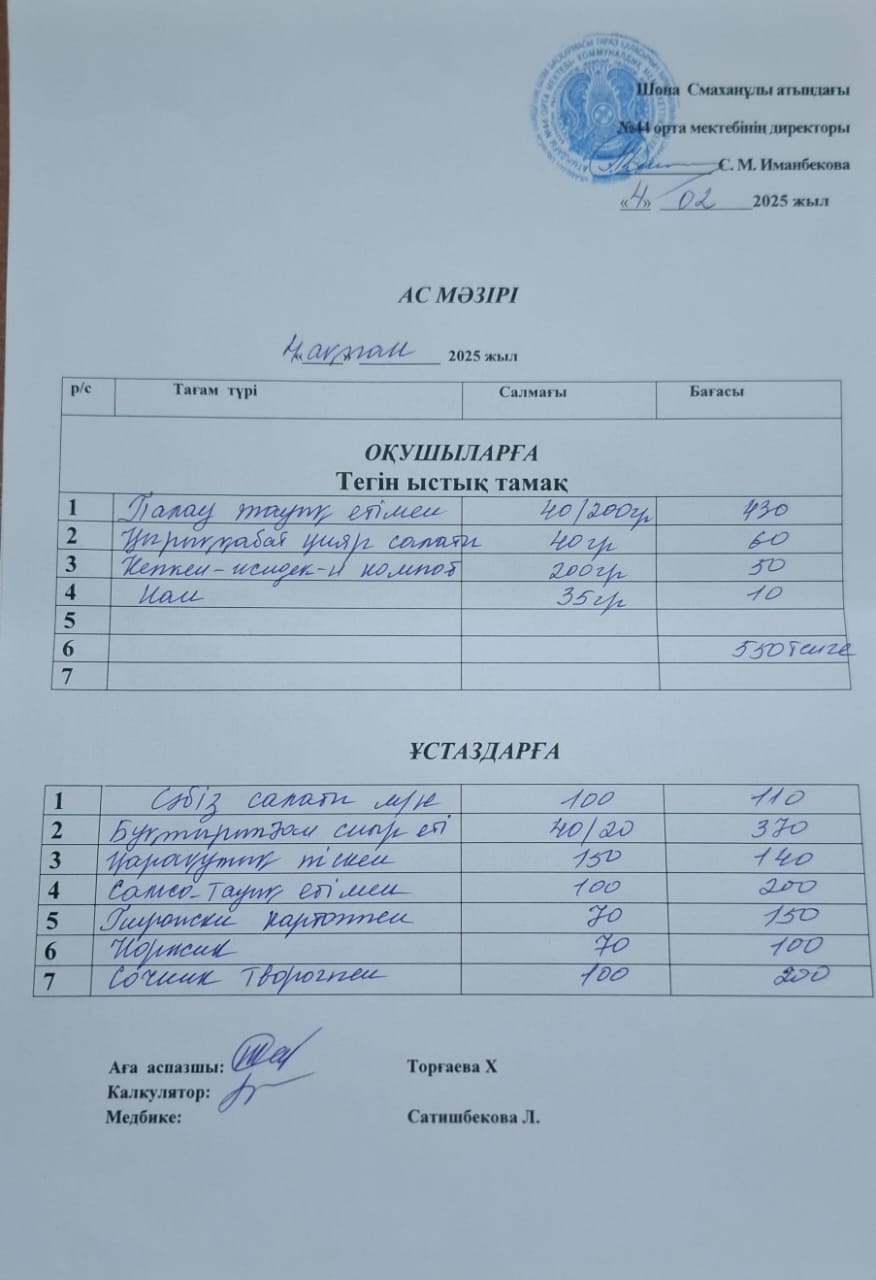 Шона Смаханұлы атындағы
№44 орта мектебінің директоры
С. М. Иманбекова
«4» 02 2025 жыл
АС МӘЗІРІ
4 ақпан 2025 жыл
р/с Тағам түрі Салмағы Бағасы
ОҚУШЫЛАРҒА
Тегін ыстық тамақ
1 Палау тауық етімен 40/200гр 430
2 Қырыққабат қияр салаты 40гр 60
3 Кепкен- компот 200гр 50
4 Нан 35гр 10
5
6 550 теңге
7
ҰСТАЗДАРҒА
1 Сәбіз салаты м/н 100 110
2 Бұқтырылған сиыр еті 40/20 370
3 Қарақұмық піскен 150 140
4 Самса-Тауық етімен 100 200
5 Пирожки картоппен 70 150
6 Коржик 70 100
7 Сочник Творогпен 100 200
Аға аспазшы: Торғаева Х
Калкулятор:
Медбике: Сатишбекова Л.